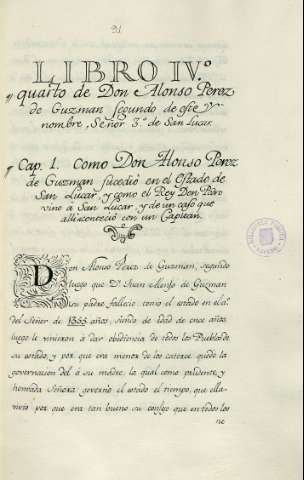 91
LIBRO IV.º
y quarto de Don Alonso Perez
de Guzman segundo de este
nombre, Señor 3.º de San Lucar.
Cap. 1. Como Don Alonso Perez
de Guzman sucedió en el Estado de
San Lucar, y como el Rey Don Pedro
vino á San Lucar, y de un caso que
alli aconteció con un Capitan.
Don Alonso Perez de Guzman, segundo
luego que D. Juan Alonso de Guzman
su padre falleció como el estado en el a.º
del Señor de 1355 años, siendo de edad de once años,
luego le vinieron á dar obediencia de todos los Pueblos de
su estado, y por que era menor de los catorce quedó la
governacion del á su madre, la qual como prudente, y
honrrada Señora governó el estado el tiempo, que ella
vivió por que era tan bueno su consejo que en todos los
ne